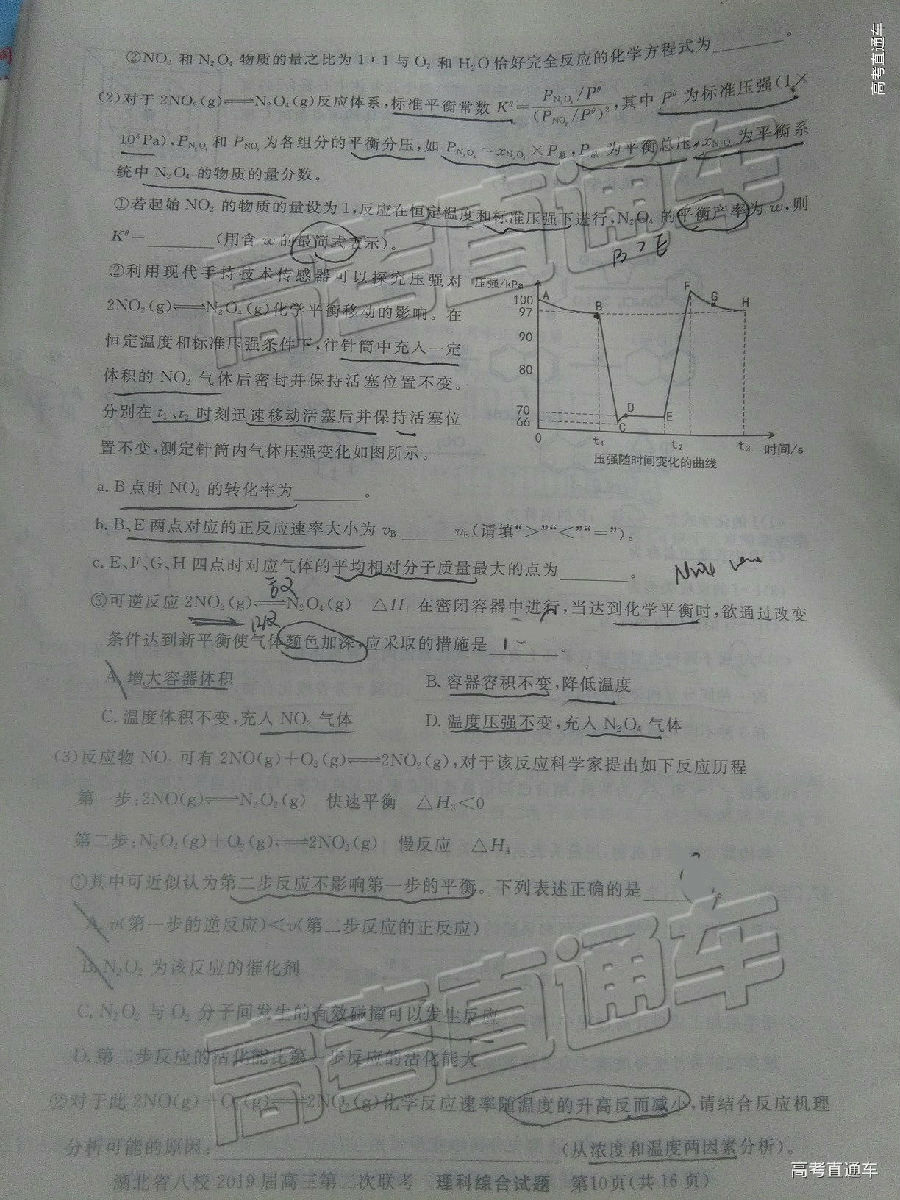 ②NO₂ 和 N₂O₄ 物质的量之比为 1∶1 与 O₂ 和 H₂O 恰好完全反应的化学方程式为________。
(2)对于 2NO₂(g)⇌N₂O₄(g)反应体系,标准平衡常数 Kᶿ=(P_N₂O₄/Pᶿ)/(P_NO₂/Pᶿ)²,其中 Pᶿ 为标准压强(1×
10⁵Pa),P_N₂O₄ 和 P_NO₂ 为各组分的平衡分压,如 P_N₂O₄=x_N₂O₄×P总,P总 为平衡总压,x_N₂O₄ 为平衡系
统中 N₂O₄ 的物质的量分数。
①若起始 NO₂ 的物质的量设为 1,反应在恒定温度和标准压强下进行,N₂O₄ 的平衡产率为 w,则
Kᶿ=________(用含 w 的最简式表示)。
②利用现代手持技术传感器可以探究压强对
2NO₂(g)⇌N₂O₄(g)化学平衡移动的影响。在
恒定温度和标准压强条件下,往针筒中充入一定
体积的 NO₂ 气体后密封并保持活塞位置不变。
分别在 t₁、t₂ 时刻迅速移动活塞后并保持活塞位
置不变,测定针筒内气体压强变化如图所示。
压强/kPa
100
97
90
80
70
66
0
A
B
C
D
E
F
G
H
t₁
t₂
t₃
时间/s
压强随时间变化的曲线
a. B 点时 NO₂ 的转化率为________。
b. B、E 两点对应的正反应速率大小为 v_B ______ v_E(请填“>”“<”“=”)。
c. E、F、G、H 四点时对应气体的平均相对分子质量最大的点为________。
③可逆反应 2NO₂(g)⇌N₂O₄(g) △H 在密闭容器中进行,当达到化学平衡时,欲通过改变
条件达到新平衡使气体颜色加深,应采取的措施是________。
A. 增大容器体积
B. 容器容积不变,降低温度
C. 温度体积不变,充入 NO₂ 气体
D. 温度压强不变,充入 N₂O₄ 气体
(3)反应物 NO₂ 可有 2NO(g)+O₂(g)⇌2NO₂(g),对于该反应科学家提出如下反应历程
第一步:2NO(g)⇌N₂O₂(g) 快速平衡 △H₃<0
第二步:N₂O₂(g)+O₂(g)⇌2NO₂(g) 慢反应 △H₄
①其中可近似认为第二步反应不影响第一步的平衡。下列表述正确的是________
A. v(第一步的逆反应)<v(第二步反应的正反应)
B. N₂O₂ 为该反应的催化剂
C. N₂O₂ 与 O₂ 分子间发生的有效碰撞可以发生反应
D. 第二步反应的活化能比第一步反应的活化能大
②对于此 2NO(g)+O₂(g)⇌2NO₂(g)化学反应速率随温度的升高反而减少,请结合反应机理
分析可能的原因:________________(从浓度和温度两因素分析)。
湖北省八校 2019 届高三第二次联考 理科综合试题 第10页(共 16 页)
高考直通车
高考直通车
高考直通车
高考直通车